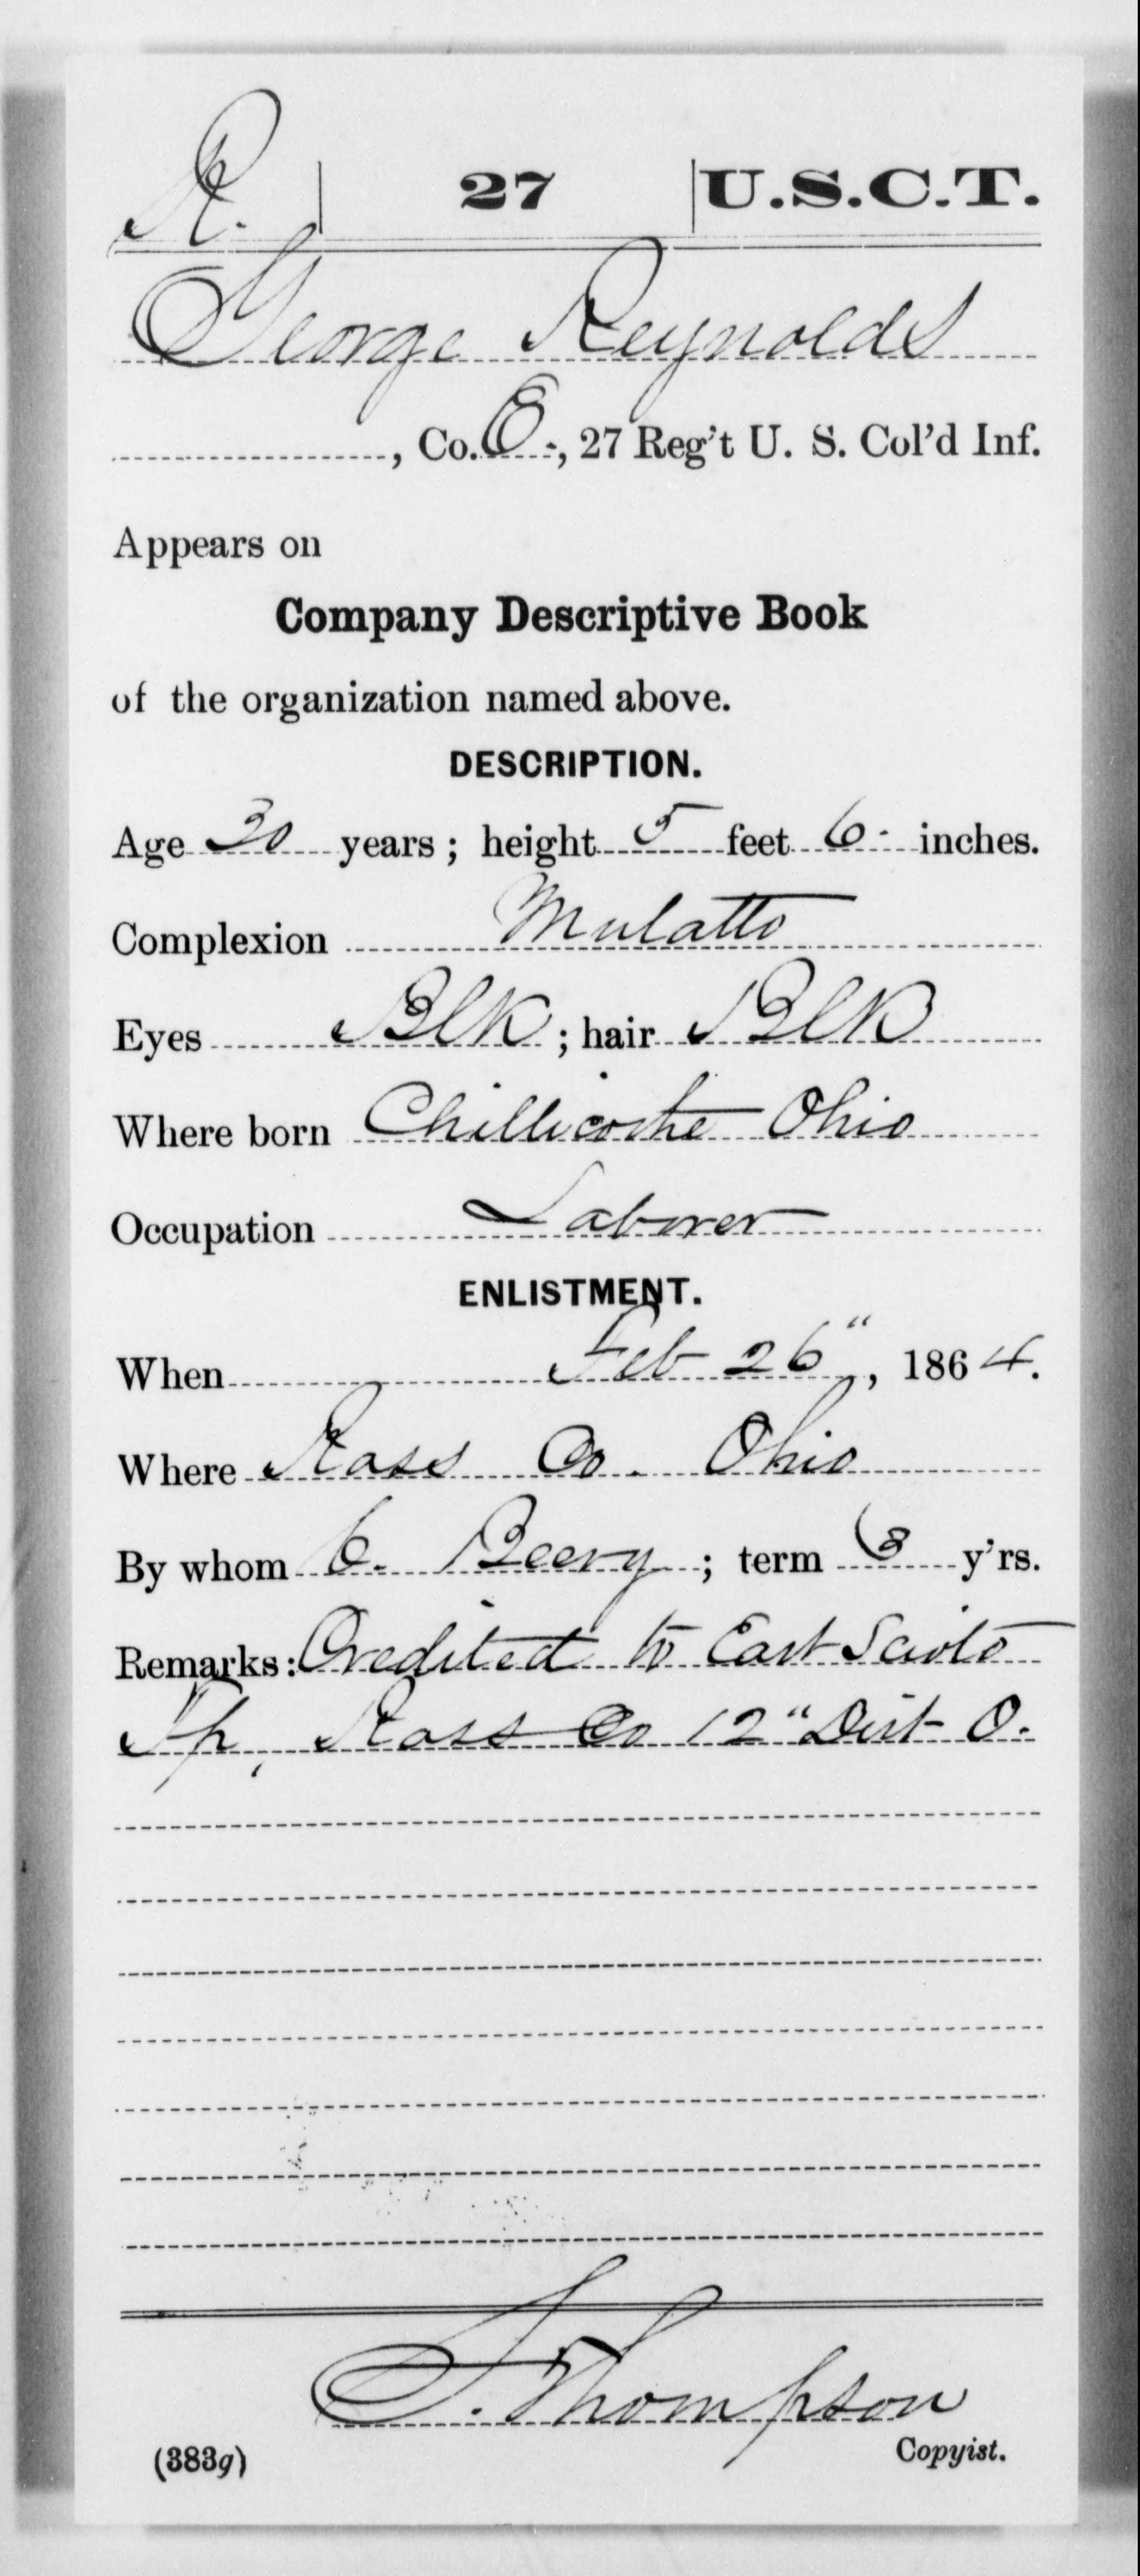 R. 27 U.S.C.T.
George Reynolds
, Co. E, 27 Reg't U. S. Col'd Inf.
Appears on
Company Descriptive Book
of the organization named above.
DESCRIPTION.
Age 30 years; height 5 feet 6 inches.
Complexion Mulatto
Eyes Blk; hair Blk
Where born Chillicothe Ohio
Occupation Laborer
ENLISTMENT.
When Feb 26", 1864.
Where Ross Co. Ohio
By whom C. Beery; term 3 y'rs.
Remarks: Credited to East Scioto
Tp, Ross Co 12" Dist O.
Thompson
(383g) Copyist.